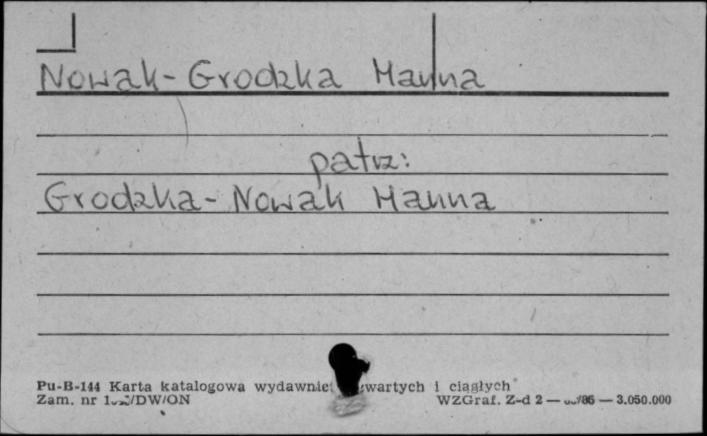 Nowak-Grodzka Hanna
patrz:
Grodzka-Nowak Hanna
Pu-B-144 Karta katalogowa wydawnict zwartych i ciągłych
Zam. nr /DW/ON WZGraf. Z-d 2 — /86 — 3.050.000